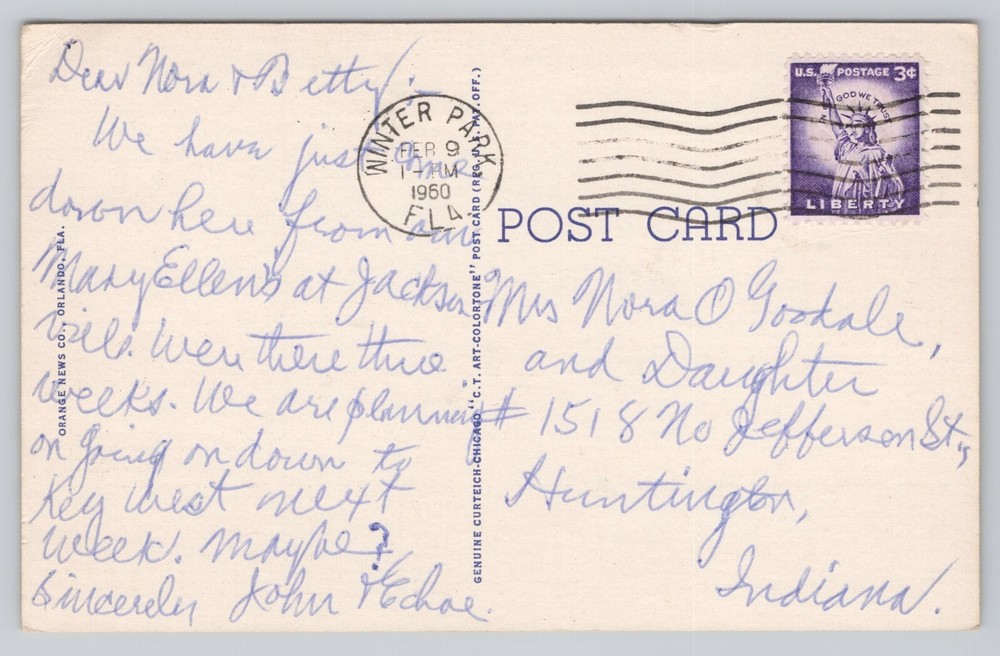 Dear Nora & Betty:-
We have just come
down here from our
Mary Ellen's at Jackson
ville. Were there three
weeks. We are planning
on going on down to
Key West next
week. Maybe?
Sincerely John & Echoe.
ORANGE NEWS CO., ORLANDO, FLA.
GENUINE CURTEICH-CHICAGO "C.T. ART-COLORTONE" POST CARD (REG. U.S. PAT. OFF.)
WINTER PARK
FEB 9
1 - PM
1960
FLA
U.S. POSTAGE 3¢
IN GOD WE TRUST
LIBERTY
POST CARD
Mrs Nora O Goodale,
and Daughter
# 1518 No Jefferson St.,
Huntington,
Indiana.